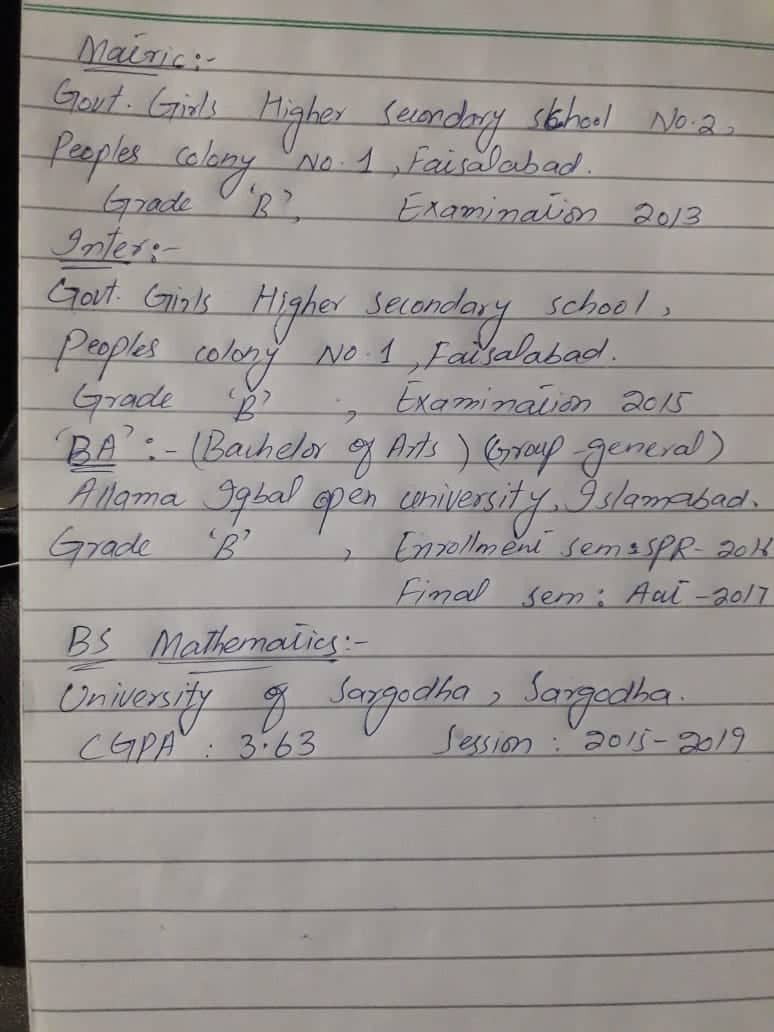 Matric:-
Govt. Girls Higher secondary school No.2,
Peoples colony No.1, Faisalabad.
Grade 'B', Examination 2013
Inter:-
Govt. Girls Higher secondary school,
Peoples colony No.1, Faisalabad.
Grade 'B' , Examination 2015
'BA' :- (Bachelor of Arts) (Group-general)
Allama Iqbal open university, Islamabad.
Grade 'B' , Enrollment sem: SPR- 2016
Final sem: Aut -2017
BS Mathematics:-
University of Sargodha, Sargodha.
CGPA : 3.63 Session : 2015-2019